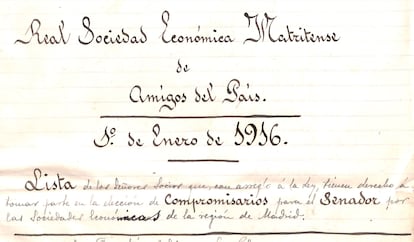 Real Sociedad Económica Matritense
de
Amigos del País.
1º de Enero de 1916.
Lista de los Señores Socios que, con arreglo á la ley, tienen derecho á
tomar parte en la elección de Compromisarios para el Senador por
las Sociedades Económicas de la región de Madrid.